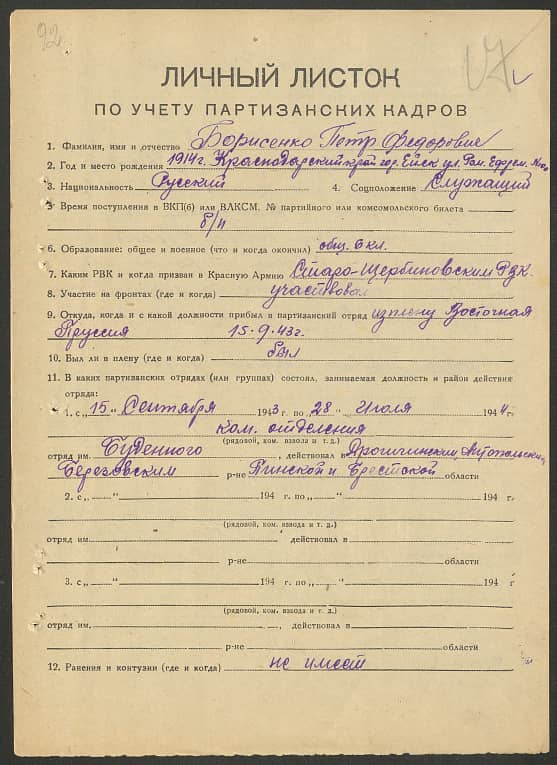 92
ЛИЧНЫЙ ЛИСТОК
ПО УЧЕТУ ПАРТИЗАНСКИХ КАДРОВ
1. Фамилия, имя и отчество Борисенко Петр Федорович
2. Год и место рождения 1914 г. Краснодарский край гор. Ейск ул.
3. Национальность Русский 4. Соцположение Служащий
5. Время поступления в ВКП(б) или ВЛКСМ, № партийного или комсомольского билета
б/п
6. Образование: общее и военное (что и когда окончил) общ. 6 кл.
7. Каким РВК и когда призван в Красную Армию Старо-Щербиновским РВК.
8. Участие на фронтах (где и когда) участвовал
9. Откуда, когда и с какой должности прибыл в партизанский отряд из плену Восточная
Пруссия 15.9.43г.
10. Был ли в плену (где и когда) был
11. В каких партизанских отрядах (или группах) состоял, занимаемая должность и район действия
отряда:
1. с „15" Сентября 1943 г. по „28" Июля 1944 г.
ком. отделения
(рядовой, ком. взвода и т. д.)
отряд им. Буденного, действовал в Дрогичинским Антопольским
Березовским р-не Пинской и Брестской области
2. с „ " 194 г. по „ " 194 г
(рядовой, ком. взвода и т. д.)
отряд им. действовал в
р-не области
3. с „ " 194 г. по „ " 194 г
(рядовой, ком. взвода и т. д.)
отряд им. , действовал в
р-не области
12. Ранения и контузии (где и когда) не имеет